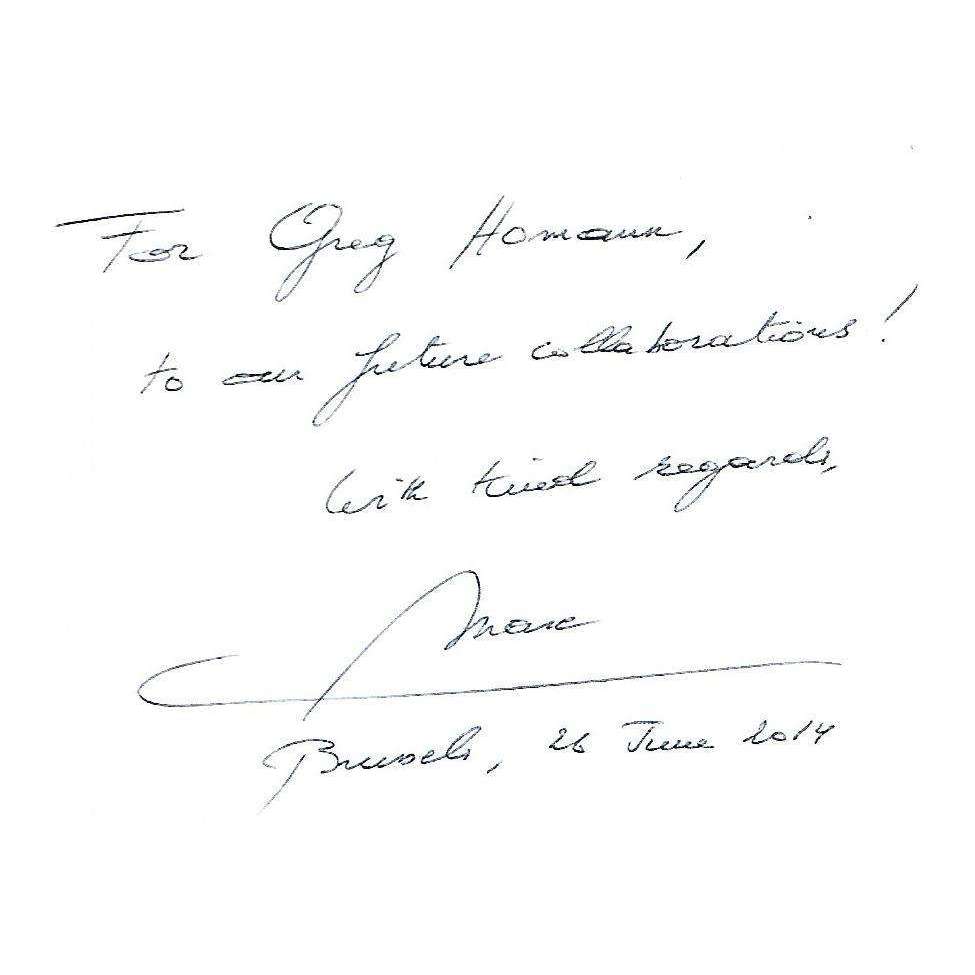 For Greg Homann,
to our future collaborations!
With kind regards,
Marc
Brussels, 26 June 2014